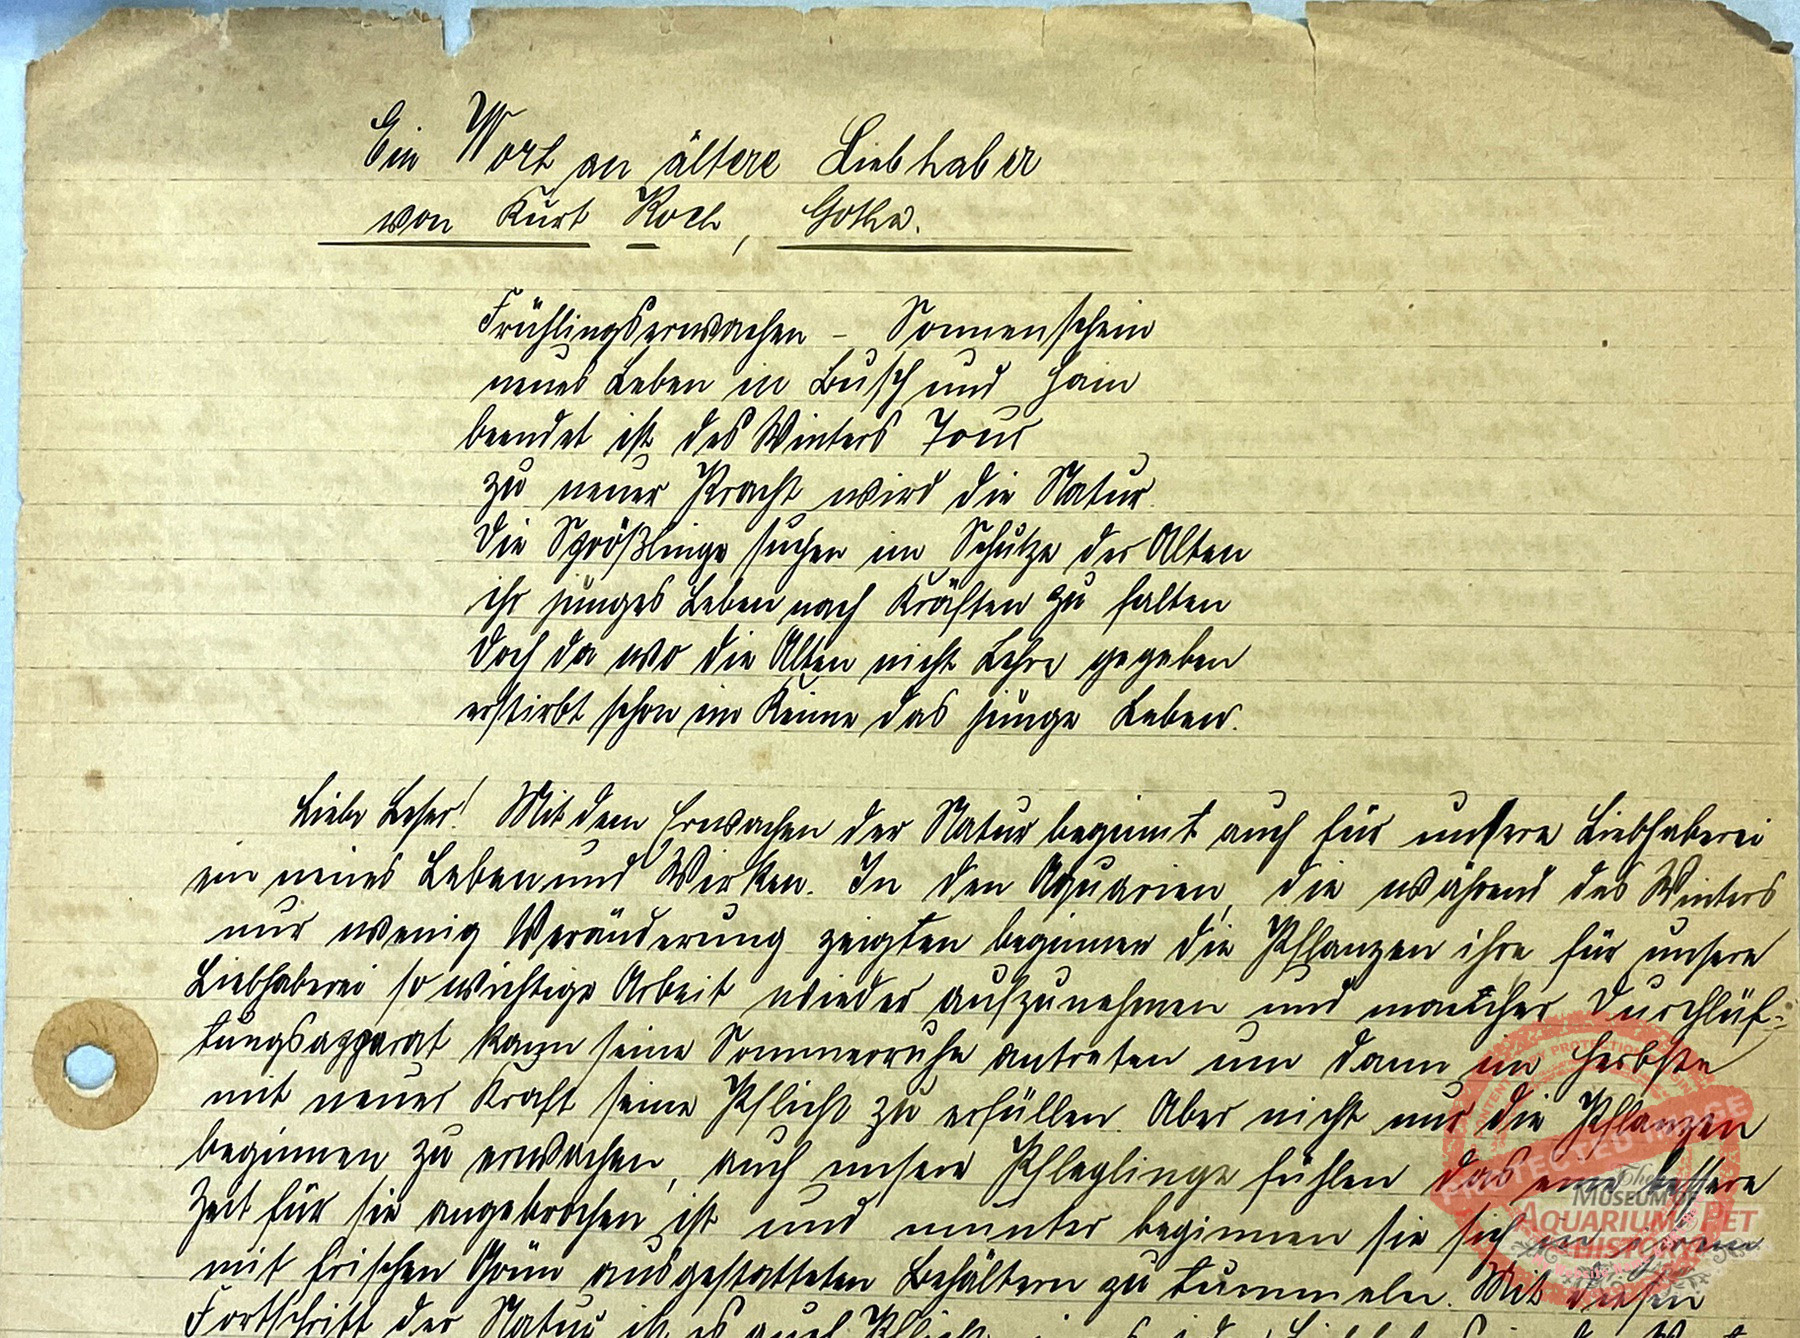 Ein Wort an ältere Liebhaber
von Kurt Koch, Gotha.
Frühlingserwachen – Sonnenschein
neues Leben in Busch und Hain
beendet ist des Winters Tour
zu neuer Pracht wird die Natur.
Die Sprößlinge suchen im Schutze der Alten
ihr junges Leben nach Kräften zu halten
Doch da wo die Alten nicht Lehre gegeben
erstirbt schon im Keime das junge Leben.
Liebe Leser! Mit dem Erwachen der Natur beginnt auch für unsere Liebhaberei
ein neues Leben und Wirken. In den Aquarien, die während des Winters
nur wenig Veränderung zeigten beginnen die Pflanzen ihre für unsere
Liebhaberei so wichtige Arbeit wieder aufzunehmen und mancher Durchlüf-
tungsapparat kann seine Sommerruhe antreten um dann im Herbste
mit neuer Kraft seine Pflicht zu erfüllen. Aber nicht nur die Pflanzen
beginnen zu erwachen, auch unsere Pfleglinge fühlen das eine bessere
Zeit für sie angebrochen ist und munter beginnen sie sich in ihren
mit frischen Grün ausgestatteten Behältern zu tummeln. Mit diesen
Fortschritt der Natur ist es auch Pflicht
PROTECTED IMAGE
The
MUSEUM OF
AQUARIUM & PET
HISTORY